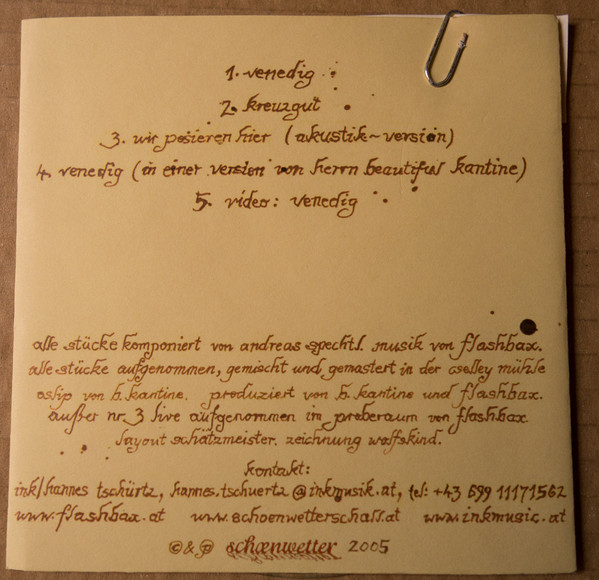 1. venedig
2. kreuzgut
3. wir posieren hier (akustik~version)
4. venedig (in einer version von herrn beautiful kantine)
5. video: venedig
alle stücke komponiert von andreas spechtl. musik von flashbax.
alle stücke aufgenommen, gemischt und gemastert in der cselley mühle
oslip von b.kantine. produziert von b. kantine und flashbax.
außer nr. 3 live aufgenommen im proberaum von flashbax.
layout schätzmeister. zeichnung wolfskind.
kontakt:
ink/hannes tschürtz, hannes.tschuertz@inkmusik.at, tel: +43 699 11171562
www.flashbax.at www.schoenwetterschall.at www.inkmusic.at
©&℗ schœnwetter 2005